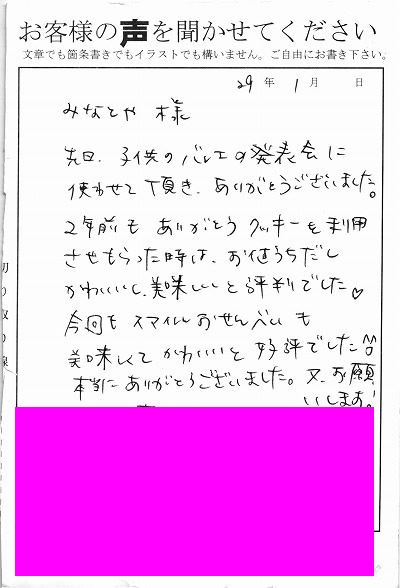 お客様の声を聞かせてください
文章でも箇条書きでもイラストでも構いません。ご自由にお書き下さい。
29年 1月 日
みなとや 様
先日、子供のバレエの発表会に
使わせて頂き、ありがとうございました。
2年前も ありがとうクッキーを利用
させもらった時は、お値うちだし
かわいいし、美味しいと評判でした♡
今回も スマイルおせんべいも
美味しくて かわいいと 好評でした
本当にありがとうございました。又、お願
いします!
切り取り線